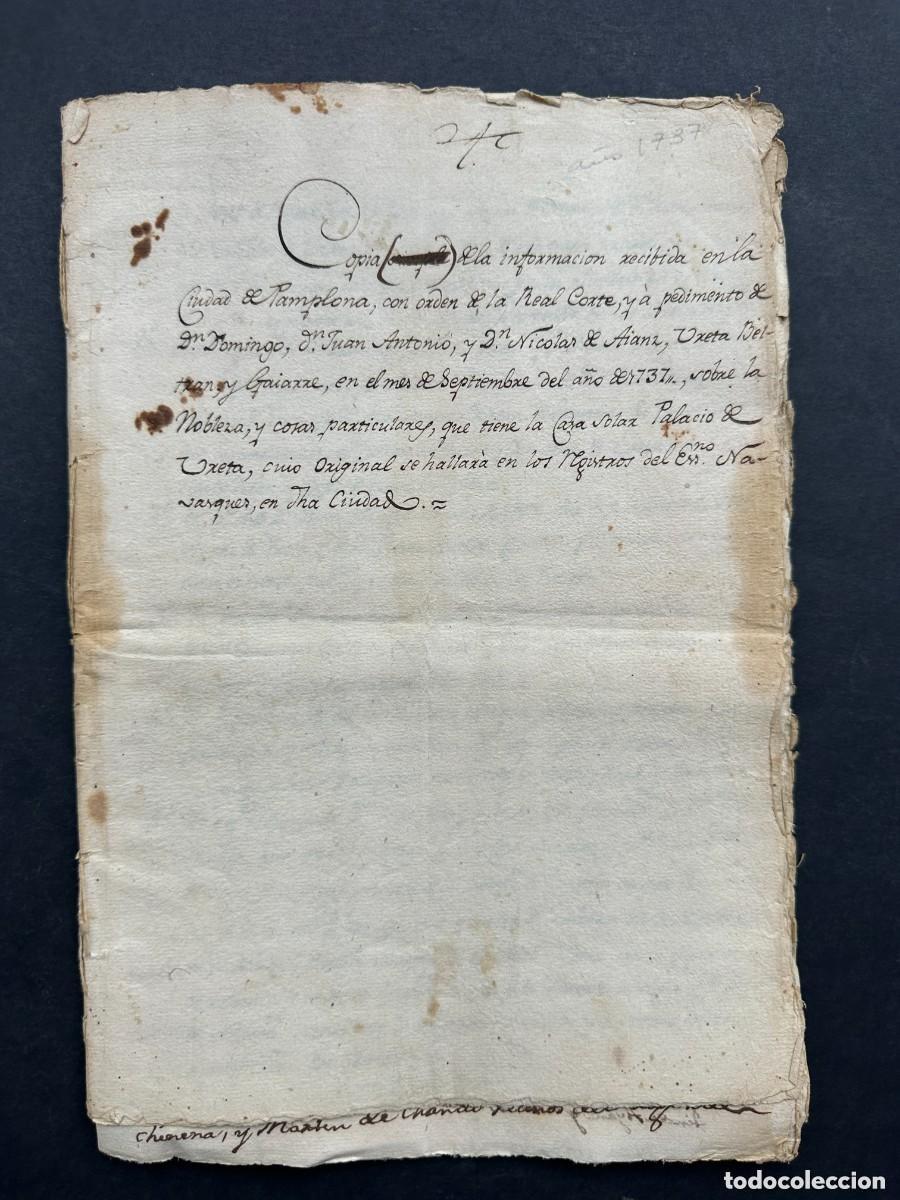 año 1737
Copia (simple) de la informacion recibida en la
Ciudad de Pamplona, con orden de la Real Corte, y à pedimento de
Dn. Domingo, dn. Juan Antonio, y Dn. Nicolas de Aianz, Ureta Bel-
tran, y Gaiarre, en el mes de Septiembre del año de 1737,, sobre la
Nobleza, y cosas particulares, que tiene la Casa solar Palacio de
Ureta, cuio Original se hallarà en los Rgistros del Essno. Na-
vasques, en dha Ciudad. ~
y Martin de
todocoleccion